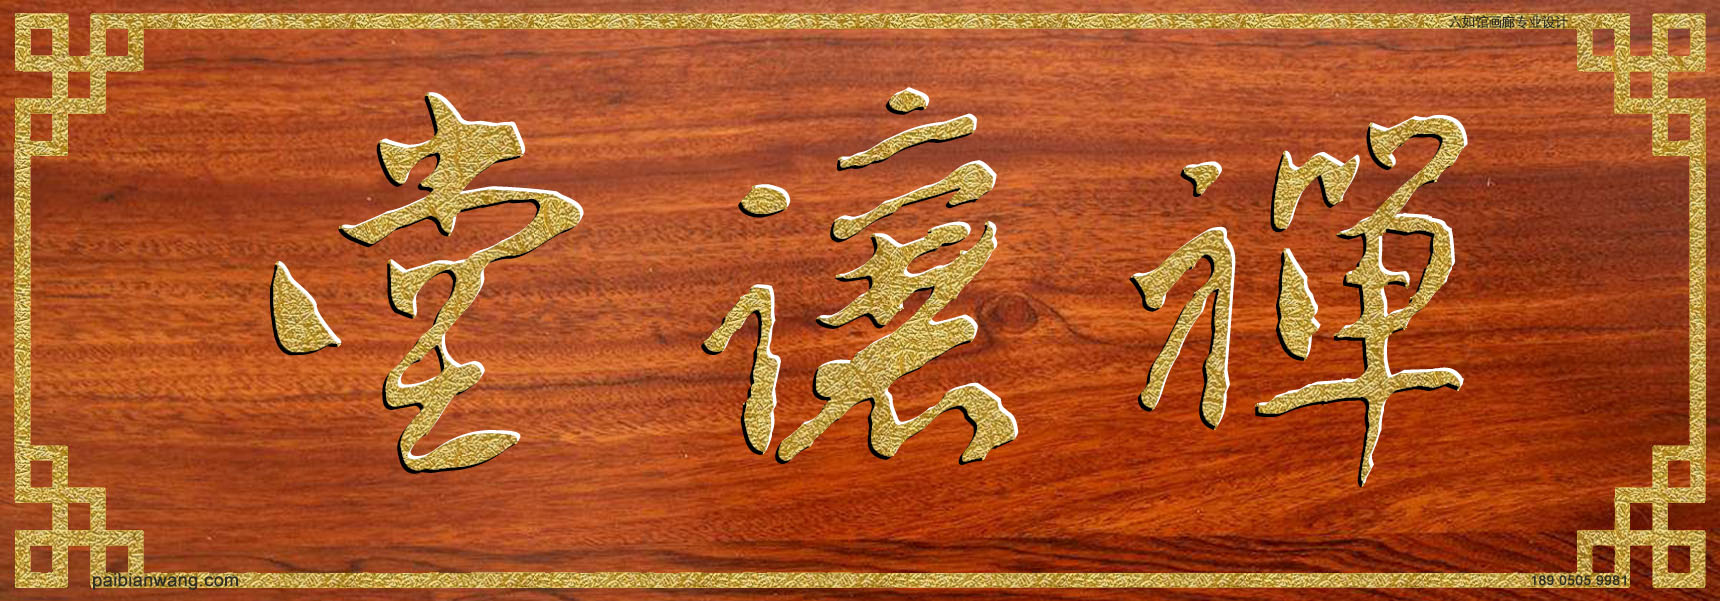 六如馆画廊专业设计
禪讓堂
paibianwang.com
189 0505 9981